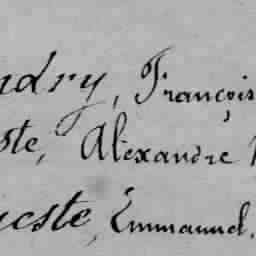 ndry, François
ste, Alexandre
ueste, Emmanuel.